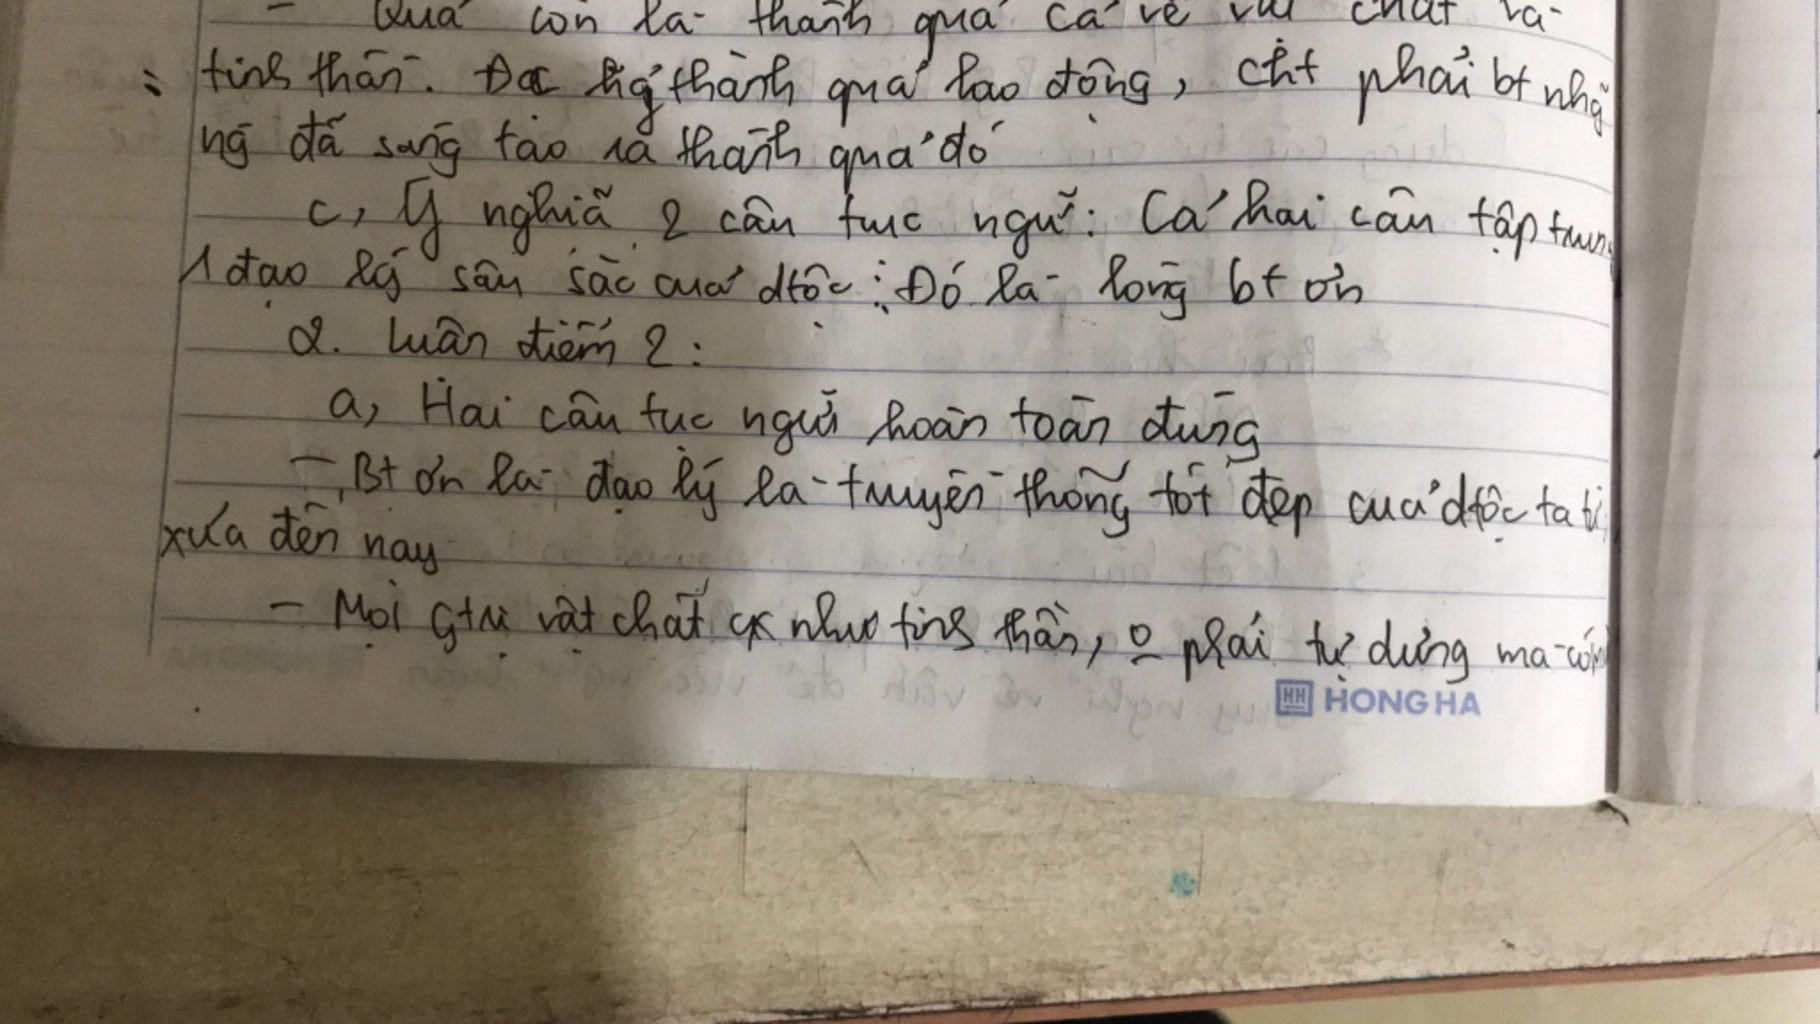 - Quả còn là thành quả cả về vật chất và
tinh thần. Đc hg thành quả lao động, cht phải bt nhg
ng đã sáng tạo ra thành quả đó
c, Ý nghĩa 2 câu tục ngữ: Cả hai câu tập trung
1 đạo lý sâu sắc của dtộc: Đó là lòng bt ơn
2. Luận điểm 2:
a, Hai câu tục ngữ hoàn toàn đúng
- Bt ơn là đạo lý là truyền thống tốt đẹp của dtộc ta từ
xưa đến nay
- Mọi gtrị vật chất cx như tinh thần, o phải tự dưng mà có
HONG HA